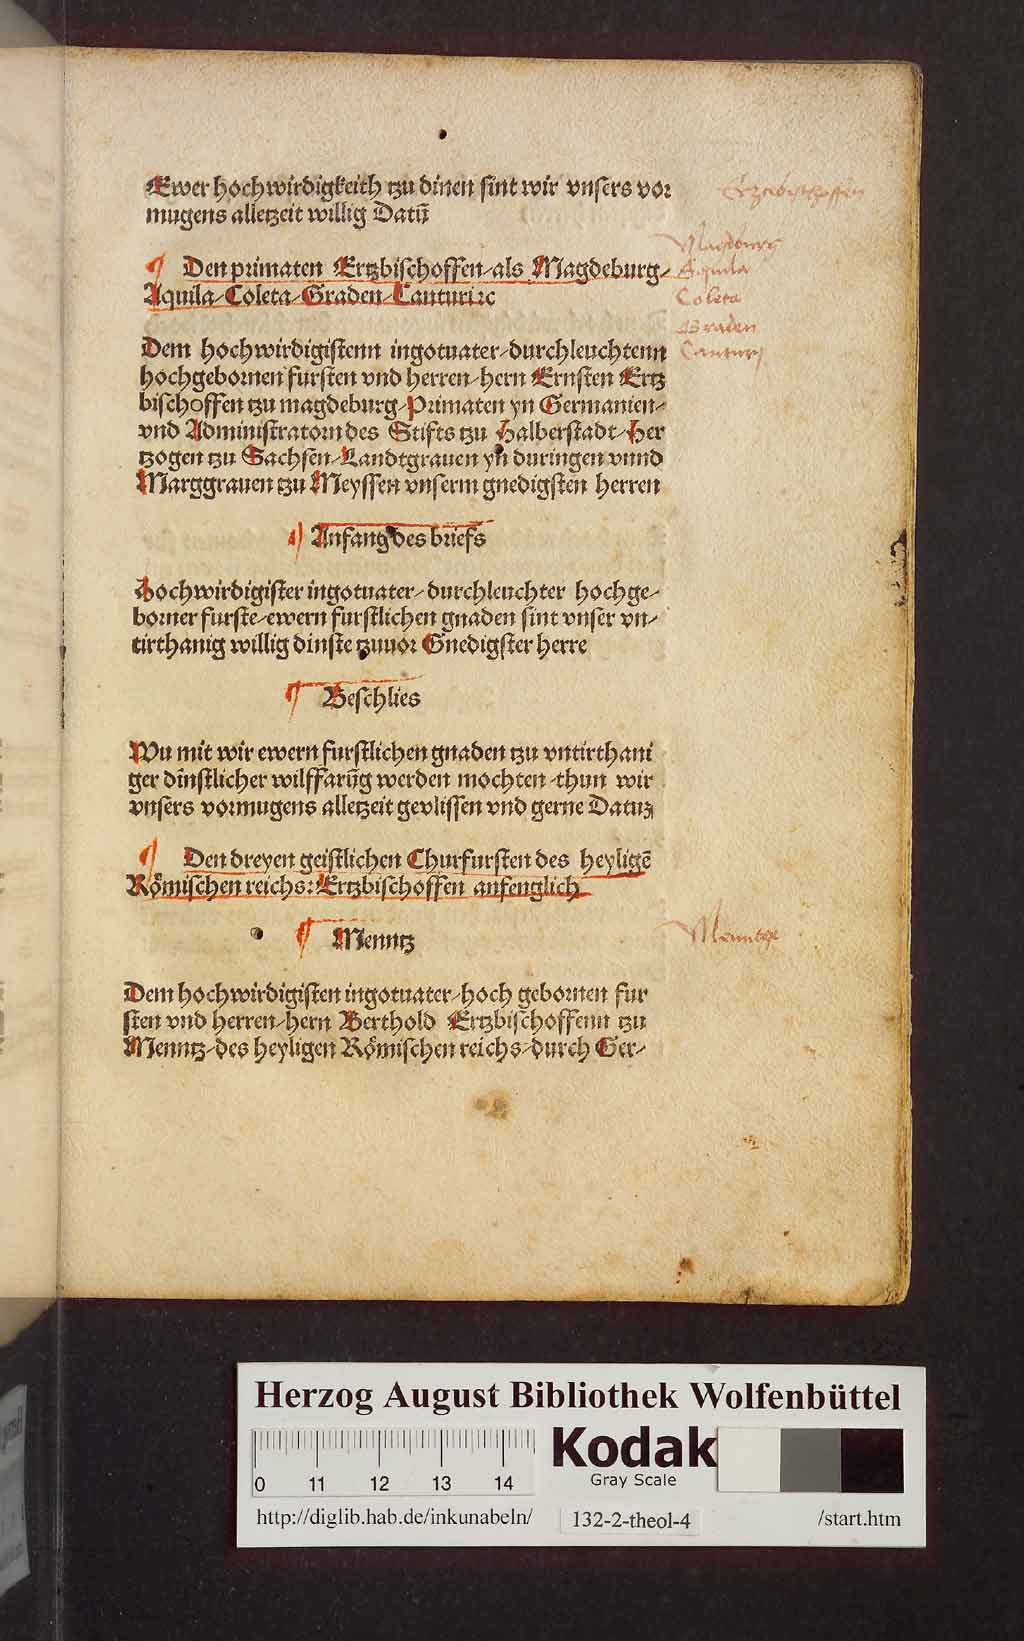 Ewer hochwirdigkeith tzu dinen sint wir vnsers vor
mugens alletzeit willig Datū
¶ Den primaten Ertzbischoffen/als Magdeburg/
Aquila/Coleta/Graden/Canturi⁊c
Dem hochwirdigistenn ingotuater/durchleuchtenn
hochgebornen fursten vnd herren/hern Ernsten Ertz
bischoffen tzu magdeburg/Primaten yn Germanien/
vnd Administratorn des Stifts tzu Halberstadt/Her
tzogen tzu Sachsen/Landtgrauen yn duringen vnnd
Marggrauen tzu Meyssen vnserm gnedigsten herren
¶ Anfang des briefs
Hochwirdigister ingotuater/durchleuchter hochge/
borner furste/ewern furstlichen gnaden sint vnser vn/
tirthanig willig dinste tzuuor Gnedigster herre
¶ Beschlies
Wu mit wir ewern furstlichen gnaden tzu vntirthani
ger dinstlicher wilffarūg werden mochten/thun wir
vnsers vormugens alletzeit gevlissen vnd gerne Datuz
¶ Den dreyen geistlichen Churfursten des heyligē
Römischen reichs: Ertzbischoffen anfenglich
¶ Menntz
Dem hochwirdigisten ingotuater/hoch gebornen fur
sten vnd herren/hern Berthold Ertzbischoffenn tzu
Menntz/des heyligen Römischen reichs/durch Ger/
Ertzebischoffen
Magdburg
Aquila
Coleta
Graden
Canturj
Menntze
Herzog August Bibliothek Wolfenbüttel
0 11 12 13 14
Kodak
Gray Scale
http://diglib.hab.de/inkunabeln/ 132-2-theol-4 /start.htm